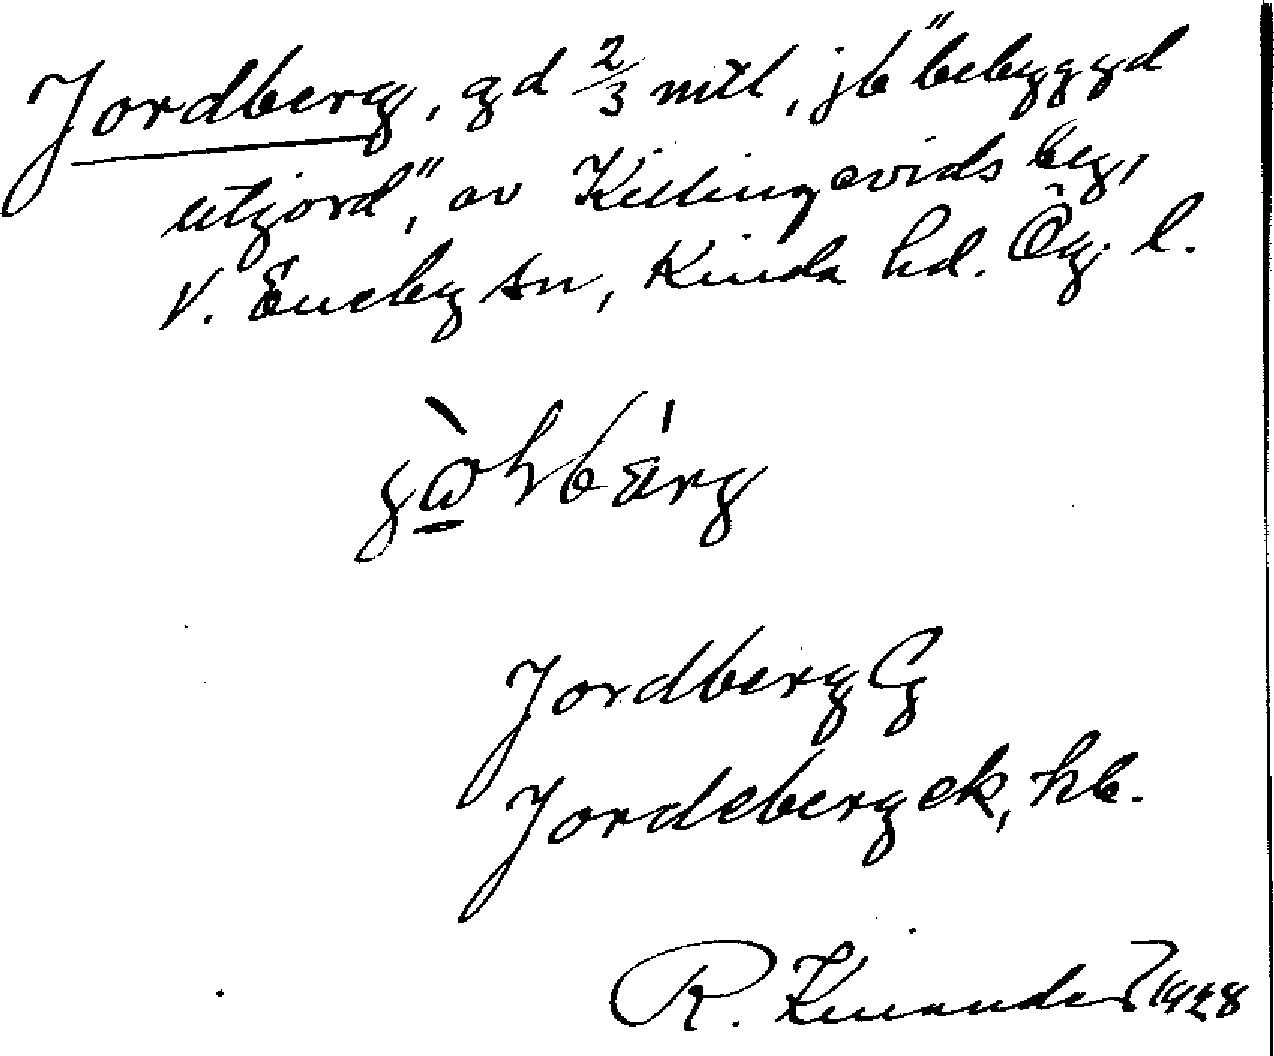 Jordberg, gd 2/3 mtl, jb "bebyggd
utjord", av Killingevids by,
V. Eneby sn, Kinda hd. Ög. l.
Jordberg Gg
Jordeberg ek, hb.
R. Kinander 1928